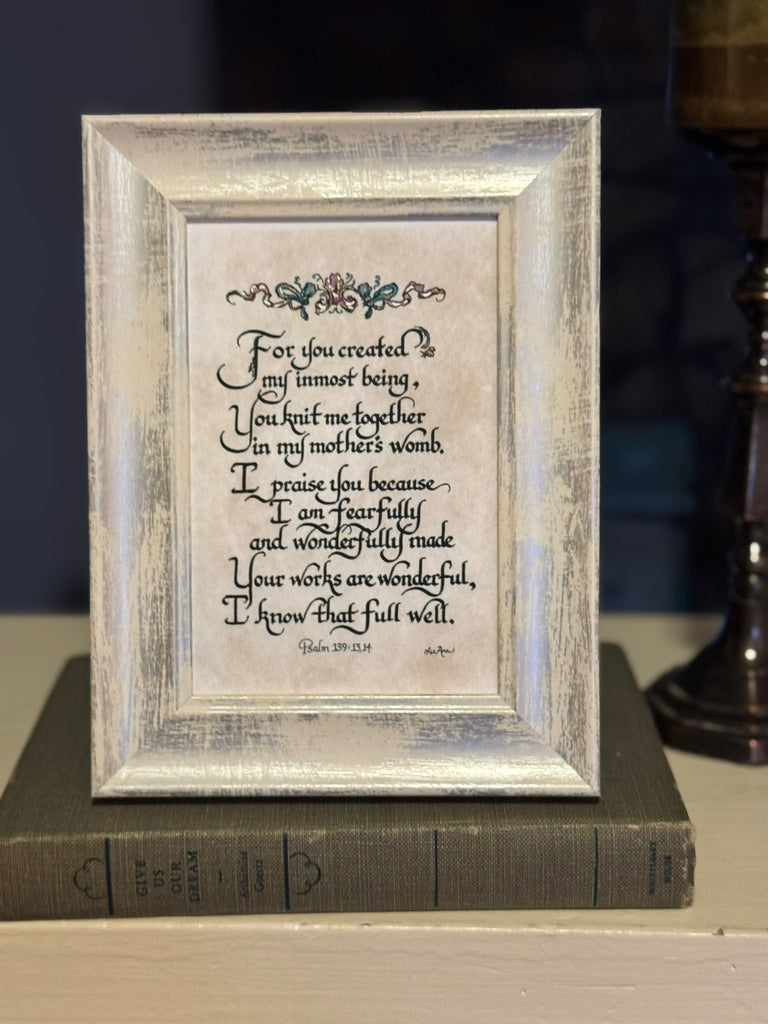 For you created
my inmost being,
You knit me together
in my mother's womb.
I praise you because
I am fearfully
and wonderfully made
Your works are wonderful,
I know that full well.
Psalm 139:13,14
GIVE
US
OUR
DREAM
Goertz
HOUSE